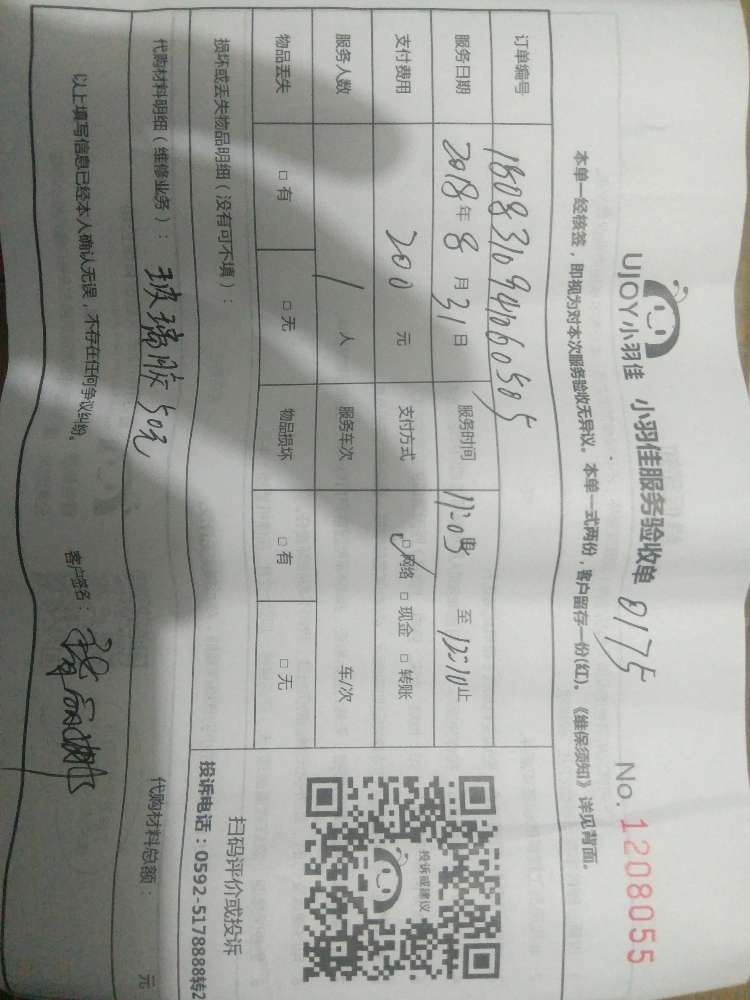 UJOY小羽佳 小羽佳服务验收单 0175 No. 1208055
本单一经核签，即视为对本次服务验收无异议。本单一式两份，客户留存一份(红)。《维保须知》详见背面。
订单编号
服务日期 2018年8月31日 服务时间 至 12:10止
支付费用 200元 支付方式 ☑网络 □现金 □转账
服务人数 1人 服务车次 车/次
物品丢失 □有 □无 物品损坏 □有 □无
损坏或丢失物品明细（没有可不填）：
代购材料明细（维修业务）：玻璃胶50元 代购材料总额： 元
以上填写信息已经本人确认无误，不存在任何争议纠纷。 客户签名：
投诉或建议
扫码评价或投诉
投诉电话：0592-5178888转2